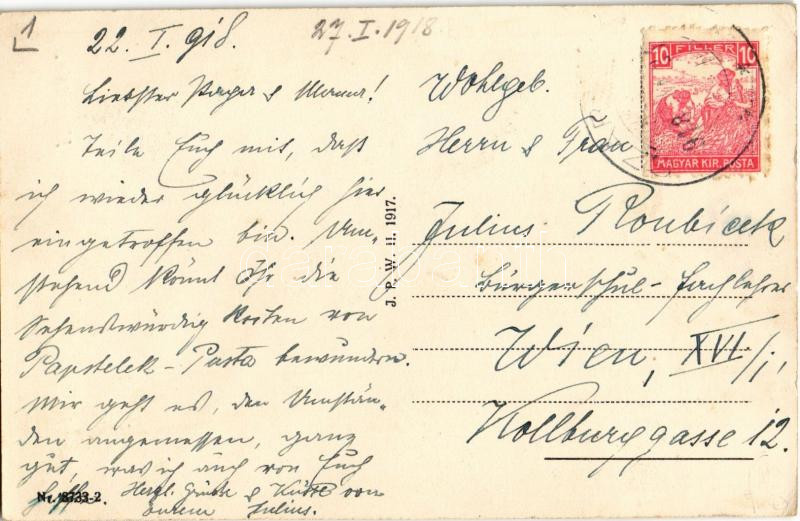 1
22. I. 918.
27. I. 1918
Liebster Papa & Mama!
Teile Euch mit, daß
ich wieder glücklich hier
eingetroffen bin. Um-
stehend könnt Ihr die
Sehenswürdigkeiten von
Papstelek-Puszta bewundern.
Mir geht es, den Umstän-
den angemessen, ganz
gut, was ich auch von Euch
hoffe. Herzl. Grüße & Küsse von
Eurem Julius.
Nr. 8733-2.
J. P. W. II. 1917.
10 FILLÉR 10
MAGYAR KIR. POSTA
Wohlgeb.
Herrn & Frau
Julius Roubicek
Bürgerschul-Fachlehrer
Wien, XVI/1,
Kollburggasse 12.